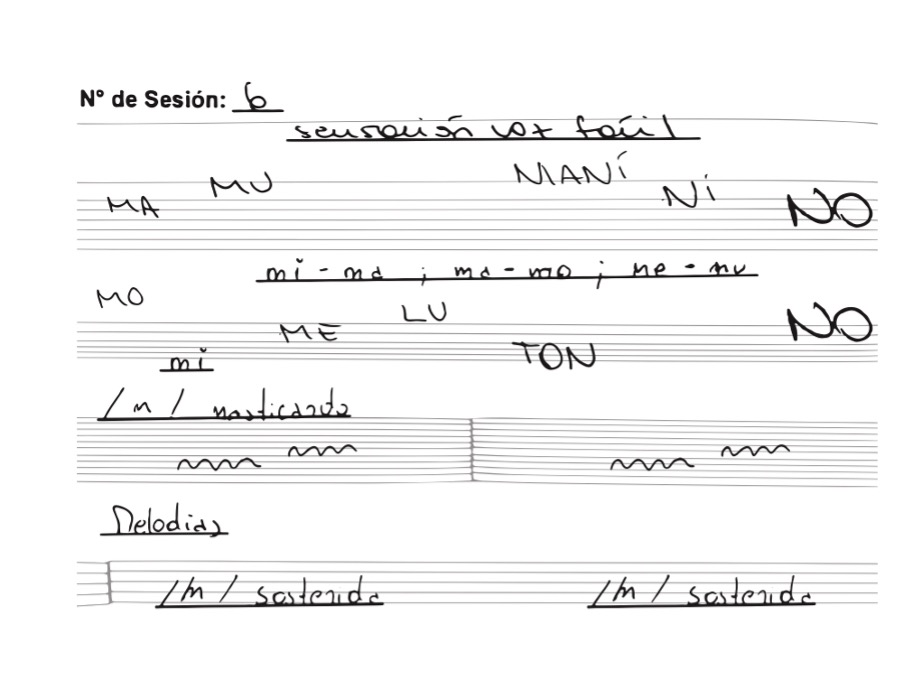 Nº de Sesión: 6
sensación voz fácil
MA MU MANÍ Ni NO
mi - ma ; ma - mo ; me - mu
MO ME LU TON NO
mi
/m/ masticando
Melodías
/m/ sostenida /m/ sostenida